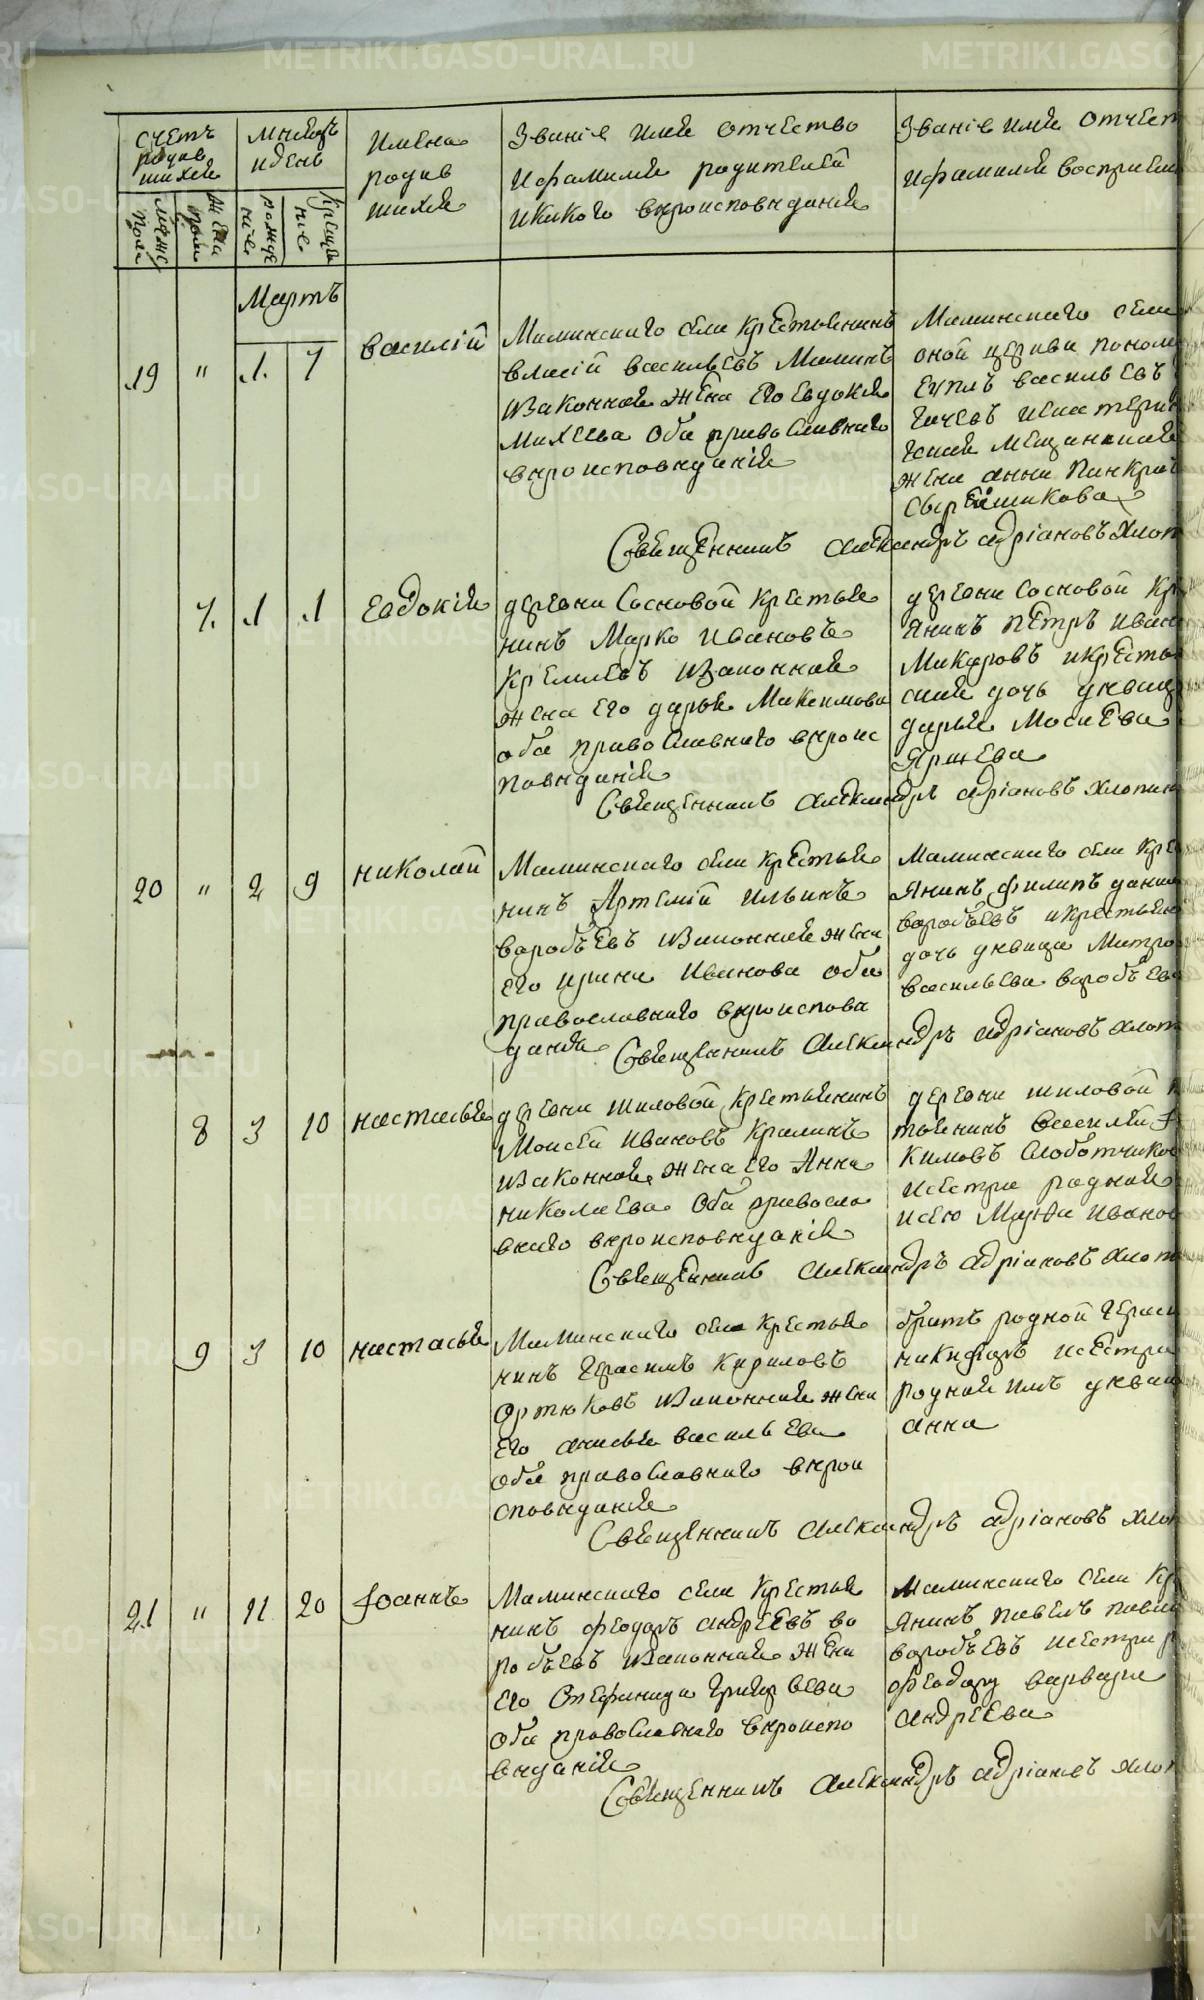 METRIKI.GASO-URAL.RU
Счетъ
родив
шихся
Мѣсяцъ
и день
Имена
родив
шихся
Званіе имя отчество
и фамилия родителей
и какого вѣроисповѣдания
Званіе имя отчест
и фамилия восприем
мужс
пола
женс
пола
рожде
ние
креще
ние
Мартъ
19 " 1. 7
василій
Маминскаго села крестьянинъ
власій васильевъ Маминъ
и законная жена его Евдокия
Михеева оба православнаго
вѣроисповѣдания
Маминскаго села
оной церкви понома
Евплъ васильевъ
жена анна Панкра
Священникъ александръ адріановъ хлоп
7. 1 1
Евдокия
деревни Сосновой крестья
нинъ Марко Ивановъ
и законная
жена его дарья Максимова
оба православнаго вѣроис
повѣдания
деревни Сосновой кр
янинъ Петръ Иван
Макаровъ и кресть
ская дочь девица
дарья Мосиева
Священникъ александръ адріановъ хлопин
20 " 2 9
николай
Маминскаго села крестья
нинъ Артемій Ильинъ
воробьевъ и законная жена
его ирина Иванова оба
православнаго вѣроисповѣ
дания
Маминскаго села кре
янинъ филипъ данил
воробьевъ и крестьян
дочь девица Матро
васильева воробьева
Священникъ александръ адріановъ хлоп
8 3 10
настасья
деревни шиловой крестьянинъ
Моисей Ивановъ Кралинъ
и законная жена его Анна
николаева оба правосла
внаго вѣроисповѣдания
деревни шиловой к
тьянинъ василий
кимовъ Слоботчиков
и сестра родная
Марфа Иванов
Священникъ александръ адріановъ хлоп
9 3 10
настасья
Маминскаго села крестья
нинъ Герасимъ Кириловъ
ортюковъ и законная жена
его анисья васильева
оба православнаго вѣрои
сповѣдания
братъ родной Гераси
никифоръ и сестра
родная имъ девица
анна
Священникъ александръ адріановъ хлоп
21 " 11 20
Іоаннъ
Маминскаго села крестья
нинъ феодоръ андреевъ во
робьевъ и законная жена
его Стефанида Григорьева
оба православнаго вѣроиспо
вѣдания
Маминскаго села кр
янинъ Павелъ павл
воробьевъ и сестра р
феодору варвара
андреева
Священникъ александръ адріановъ хлоп